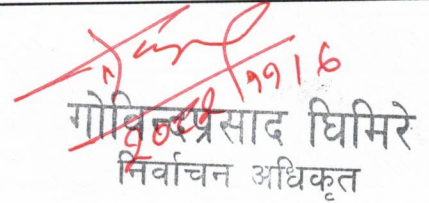 गोविन्दप्रसाद घिमिरे
निर्वाचन अधिकृत